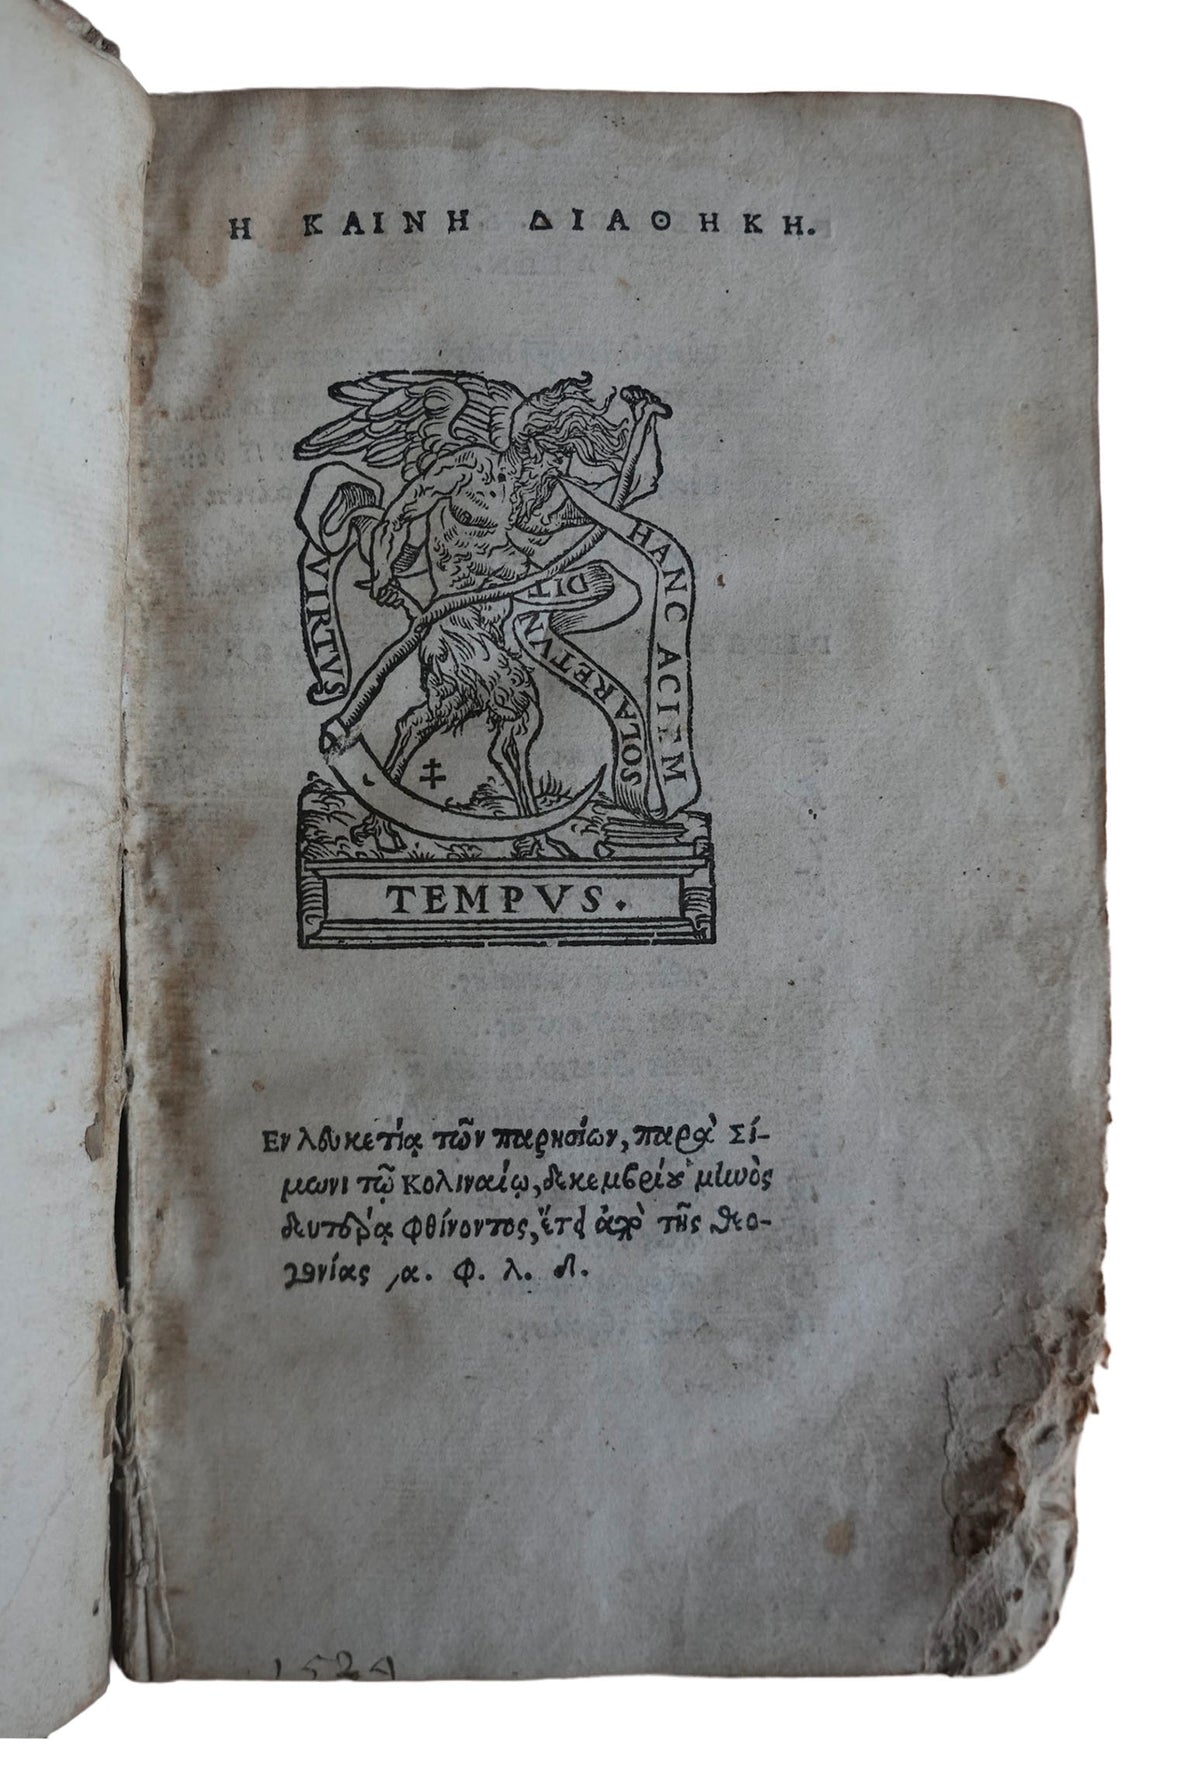 Η ΚΑΙΝΗ ΔΙΑΘΗΚΗ.
VIRTVS
HANC ACIEM
SOLARETVN
DIT
TEMPVS.
Εν λευκετίᾳ τῶν παρησίων, παρὰ Σί-
μωνι τῷ Κολιναίῳ, δεκεμβρίου μηνὸς
δευτέρᾳ φθίνοντος, ἔτει ἀπὸ τῆς θεο-
γενίας ͵α. φ. λ. δ.